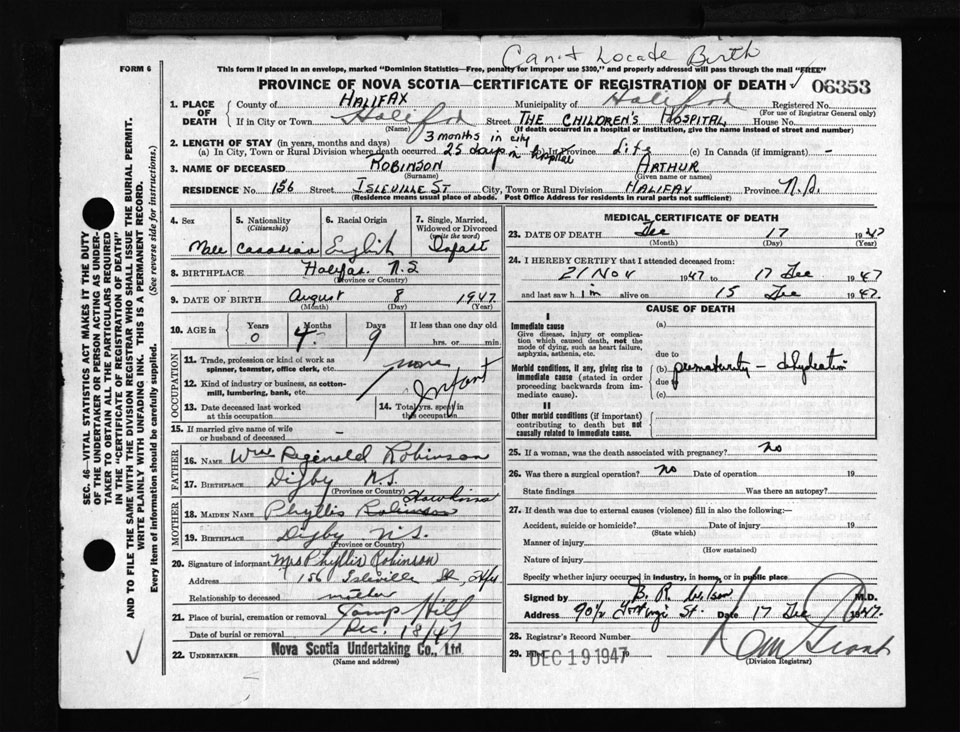 Can't Locate Birth
FORM 6
This form if placed in an envelope, marked "Dominion Statistics—Free, penalty for improper use $300," and properly addressed will pass through the mail "FREE"
PROVINCE OF NOVA SCOTIA—CERTIFICATE OF REGISTRATION OF DEATH 06353
1. PLACE OF DEATH
County of HALIFAX Municipality of Registered No.
(For use of Registrar General only)
If in City or Town Halifax Street THE CHILDREN'S HOSPITAL House No.
(Name) (If death occurred in a hospital or institution, give the name instead of street and number)
2. LENGTH OF STAY (in years, months and days) 3 months in city
(a) In City, Town or Rural Division where death occurred 25 days in hospital (b) In Province Life (c) In Canada (if immigrant) -
3. NAME OF DECEASED ROBINSON ARTHUR
(Surname) (Given name or names)
RESIDENCE No. 156 Street ISLEVILLE ST City, Town or Rural Division HALIFAX Province N.S.
(Residence means usual place of abode. Post Office Address for residents in rural parts not sufficient)
SEC. 46—VITAL STATISTICS ACT MAKES IT THE DUTY
OF THE UNDERTAKER OR PERSON ACTING AS UNDER-
TAKER TO OBTAIN ALL THE PARTICULARS REQUIRED
IN THE "CERTIFICATE OF REGISTRATION OF DEATH"
AND TO FILE THE SAME WITH THE DIVISION REGISTRAR WHO SHALL ISSUE THE BURIAL PERMIT.
WRITE PLAINLY WITH UNFADING INK. THIS IS A PERMANENT RECORD.
Every item of information should be carefully supplied. (See reverse side for instructions.)
4. Sex Male
5. Nationality (Citizenship) Canadian
6. Racial Origin English
7. Single, Married, Widowed or Divorced (write the word) Infant
8. BIRTHPLACE Halifax N.S.
(Province or Country)
9. DATE OF BIRTH August 8 1947
(Month) (Day) (Year)
10. AGE in Years 0 Months 4 Days 9 If less than one day old
hrs. or min.
OCCUPATION
11. Trade, profession or kind of work as spinner, teamster, office clerk, etc. none
12. Kind of industry or business, as cotton-mill, lumbering, bank, etc. Infant
13. Date deceased last worked at this occupation
14. Total yrs. spent in this occupation
15. If married give name of wife or husband of deceased -
FATHER
16. NAME Wm Reginald Robinson
17. BIRTHPLACE Digby N.S.
(Province or Country)
MOTHER
18. MAIDEN NAME Phyllis Robinson Hawkins
19. BIRTHPLACE Digby N.S.
(Province or Country)
20. Signature of informant Mrs Phyllis Robinson
Address 156 Isleville St,
Relationship to deceased mother
21. Place of burial, cremation or removal Camp Hill
Date of burial or removal Dec. 18/47
22. UNDERTAKER Nova Scotia Undertaking Co., Ltd.
(Name and address)
MEDICAL CERTIFICATE OF DEATH
23. DATE OF DEATH Dec 17 1947
(Month) (Day) (Year)
24. I HEREBY CERTIFY that I attended deceased from:
21 Nov 1947 to 17 Dec 1947
and last saw him alive on 15 Dec 1947.
CAUSE OF DEATH
I
Immediate cause
Give disease, injury or complication which caused death, not the mode of dying, such as heart failure, asphyxia, asthenia, etc.
(a)
due to
Morbid conditions, if any, giving rise to immediate cause (stated in order proceeding backwards from immediate cause).
(b) prematurity - dehydration
due
(c)
II
Other morbid conditions (if important) contributing to death but not causally related to immediate cause.
25. If a woman, was the death associated with pregnancy? No
26. Was there a surgical operation? No Date of operation 19
State findings Was there an autopsy?
27. If death was due to external causes (violence) fill in also the following:—
Accident, suicide or homicide? Date of injury 19
(State which)
Manner of injury
(How sustained)
Nature of injury
Specify whether injury occurred in industry, in home, or in public place
Signed by B. R. Wilson M.D.
Address St. Date 17 Dec 1947.
28. Registrar's Record Number
29. Filed DEC 19 1947
(Division Registrar)